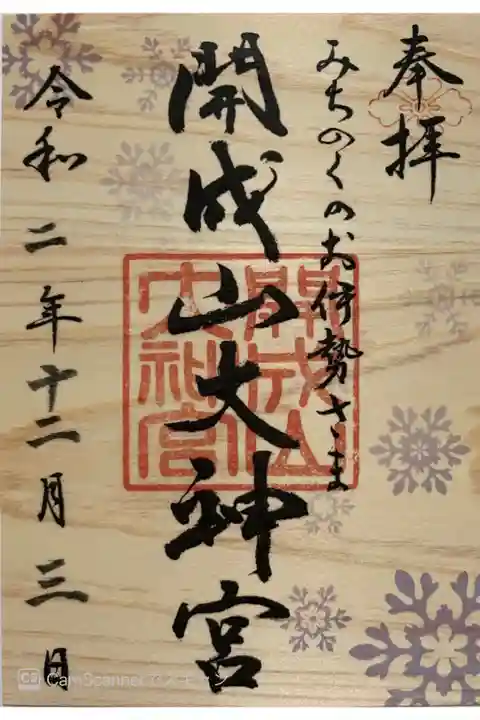 奉拝
みちのくのお伊勢さま
開成山大神宮
開成山
大神宮
令和二年十二月三日
CS CamScanner